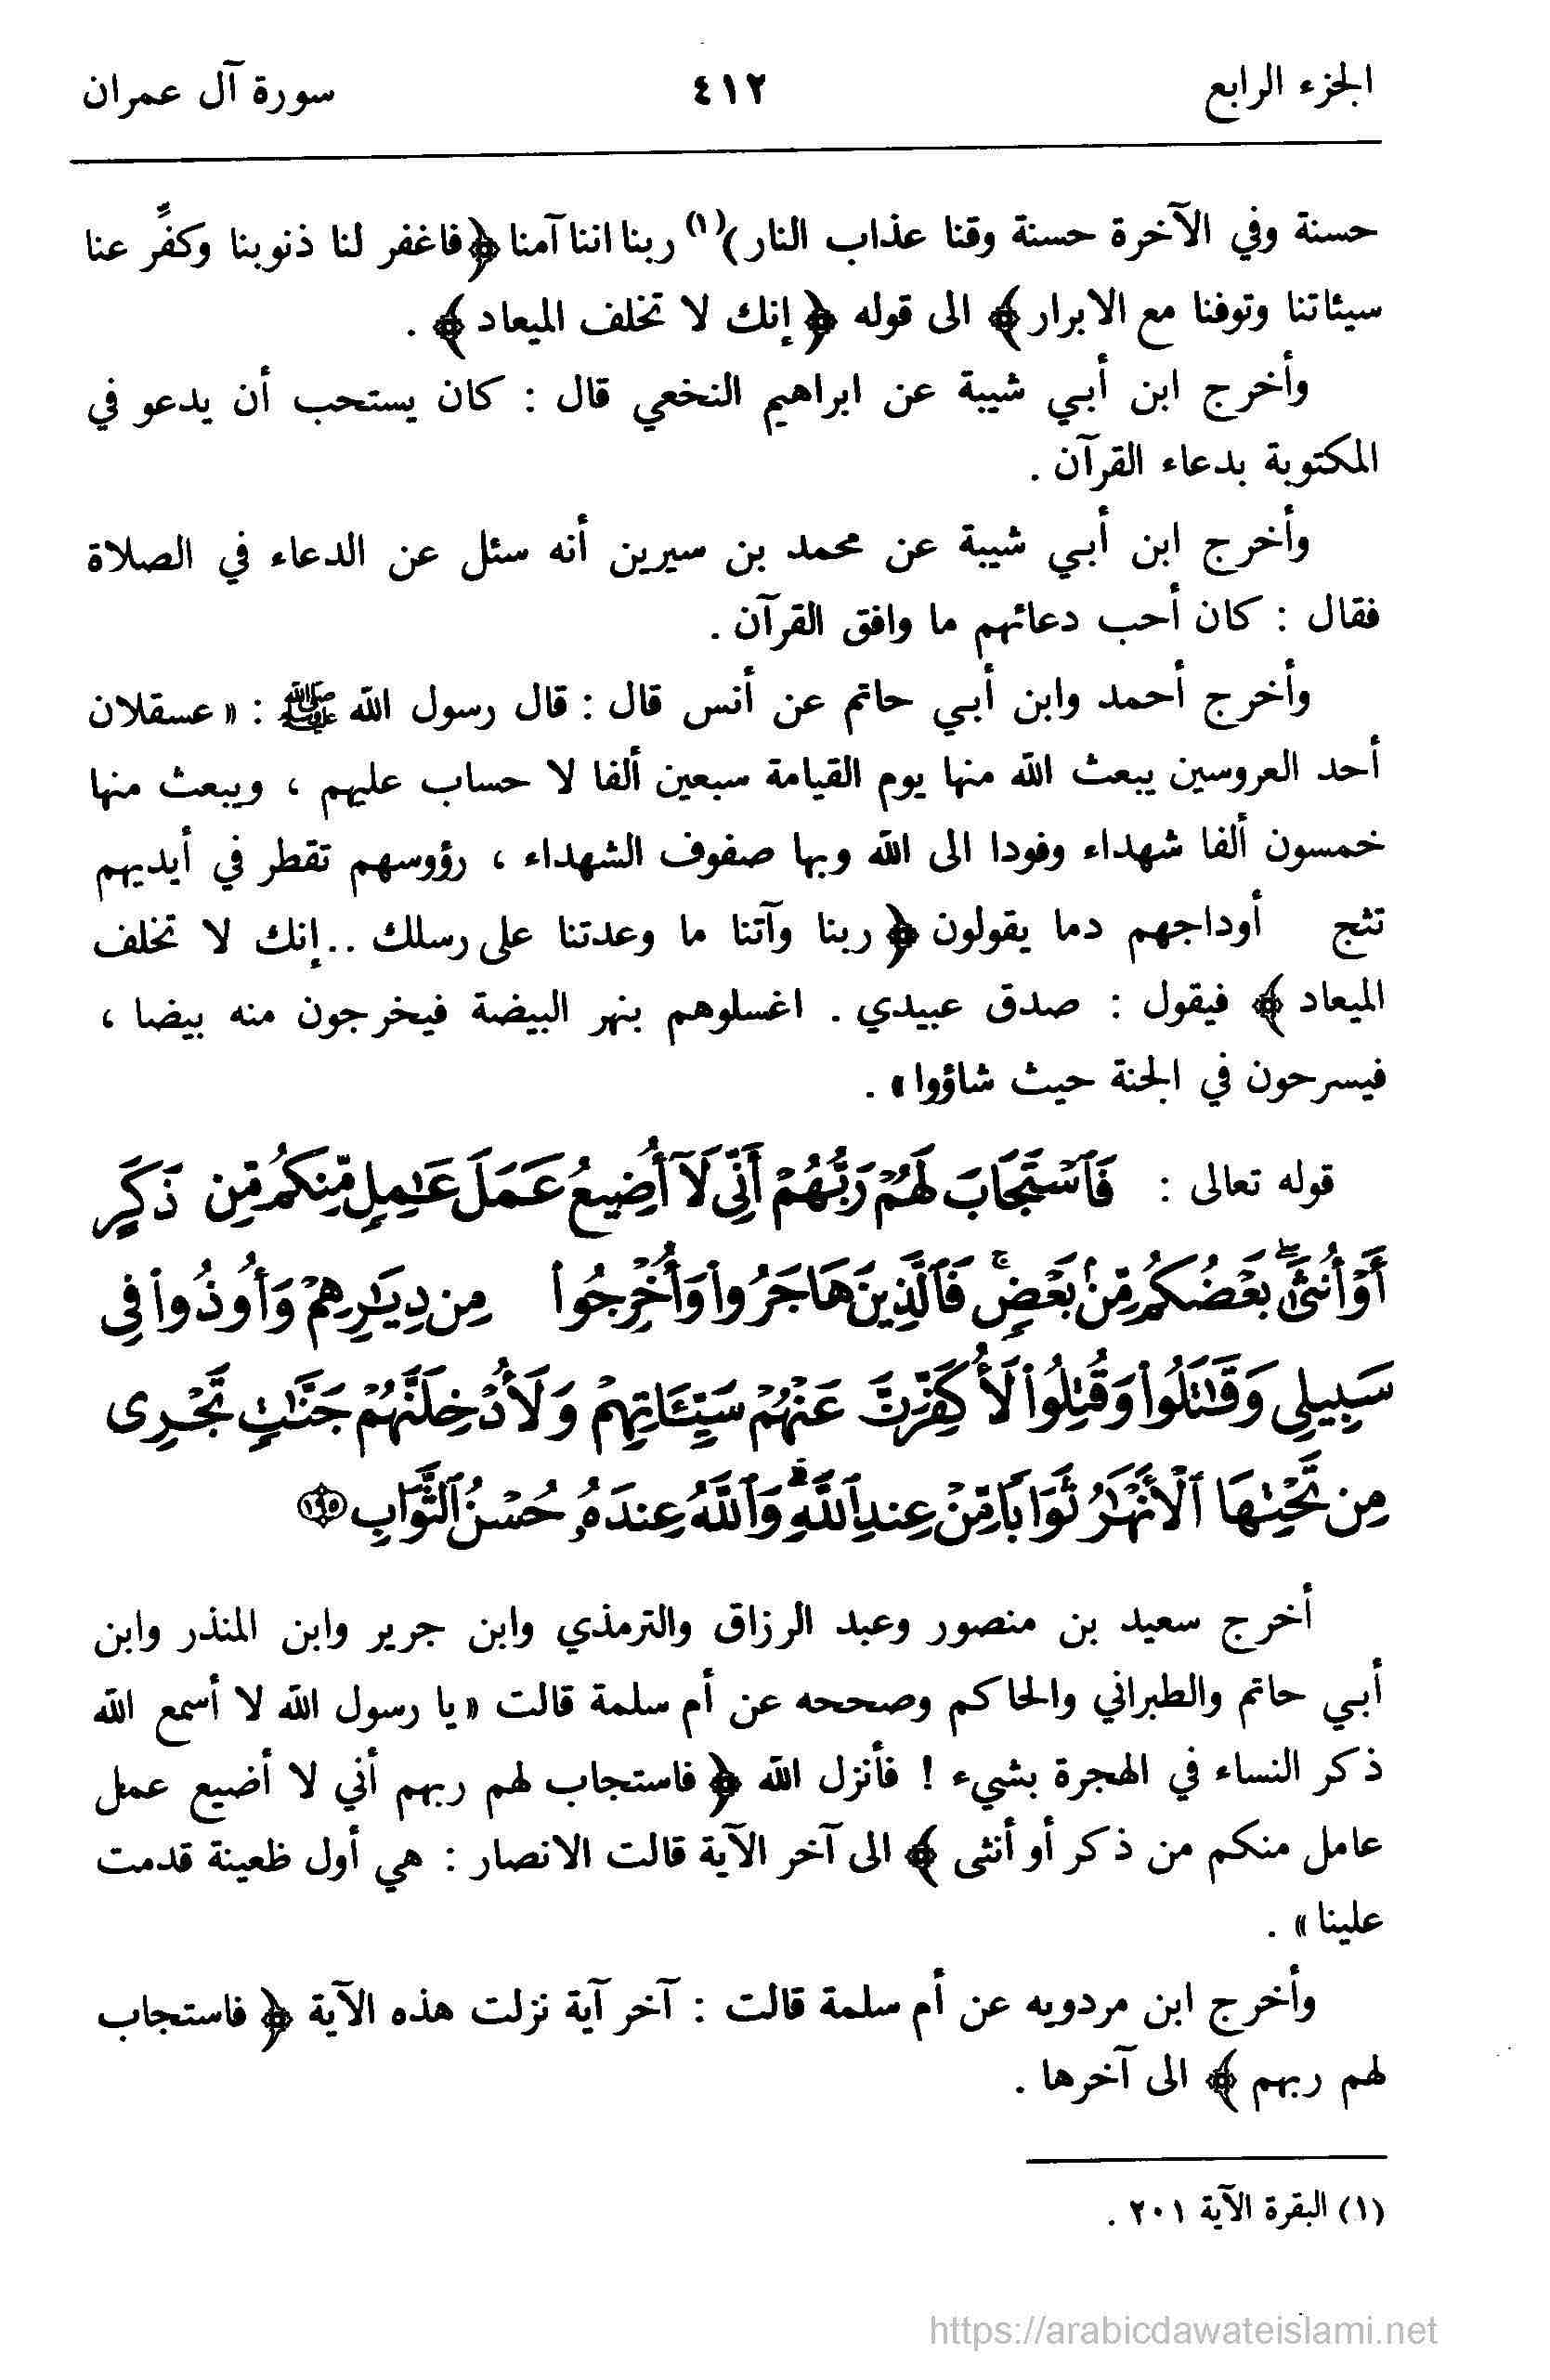 الجزء الرابع ٤١٢ سورة آل عمران
حسنة وفي الآخرة حسنة وقنا عذاب النار)(١) ربنا اننا آمنا ﴿فاغفر لنا ذنوبنا وكفرِّ عنا
سيئاتنا وتوفنا مع الابرار﴾ الى قوله ﴿إنك لا تخلف الميعاد﴾ .
وأخرج ابن أبي شيبة عن ابراهيم النخعي قال : كان يستحب أن يدعو في
المكتوبة بدعاء القرآن .
وأخرج ابن أبي شيبة عن محمد بن سيرين أنه سئل عن الدعاء في الصلاة
فقال : كان أحب دعائهم ما وافق القرآن .
وأخرج أحمد وابن أبي حاتم عن أنس قال : قال رسول الله ﷺ : « عسقلان
أحد العروسين يبعث الله منها يوم القيامة سبعين ألفا لا حساب عليهم ، ويبعث منها
خمسون ألفا شهداء وفودا الى الله وبها صفوف الشهداء ، رؤوسهم تقطر في أيديهم
تثج أوداجهم دما يقولون ﴿ربنا وآتنا ما وعدتنا على رسلك ..إنك لا تخلف
الميعاد ﴾ فيقول : صدق عبيدي . اغسلوهم بنهر البيضة فيخرجون منه بيضا ،
فيسرحون في الجنة حيث شاؤوا » .
قوله تعالى : فَٱسْتَجَابَ لَهُمْ رَبُّهُمْ أَنِّى لَآ أُضِيعُ عَمَلَ عَـٰمِلٍ مِّنكُم مِّن ذَكَرٍ
أَوْ أُنثَىٰ ۖ بَعْضُكُم مِّنۢ بَعْضٍ ۚ فَٱلَّذِينَ هَاجَرُوا۟ وَأُخْرِجُوا۟ مِن دِيَـٰرِهِمْ وَأُوذُوا۟ فِى
سَبِيلِى وَقَـٰتَلُوا۟ وَقُتِلُوا۟ لَأُكَفِّرَنَّ عَنْهُمْ سَيِّـَٔاتِهِمْ وَلَأُدْخِلَنَّهُمْ جَنَّـٰتٍ تَجْرِى
مِن تَحْتِهَا ٱلْأَنْهَـٰرُ ثَوَابًا مِّنْ عِندِ ٱللَّهِ ۗ وَٱللَّهُ عِندَهُۥ حُسْنُ ٱلثَّوَابِ ١٩٥
أخرج سعيد بن منصور وعبد الرزاق والترمذي وابن جرير وابن المنذر وابن
أبي حاتم والطبراني والحاكم وصححه عن أم سلمة قالت « يا رسول الله لا أسمع الله
ذكر النساء في الهجرة بشيء ! فأنزل الله ﴿ فاستجاب لهم ربهم أني لا أضيع عمل
عامل منكم من ذكر أو أنثى ﴾ الى آخر الآية قالت الانصار : هي أول ظعينة قدمت
علينا » .
وأخرج ابن مردويه عن أم سلمة قالت : آخر آية نزلت هذه الآية ﴿ فاستجاب
لهم ربهم ﴾ الى آخرها .
(١) البقرة الآية ٢٠١ .
https://arabicdawateislami.net